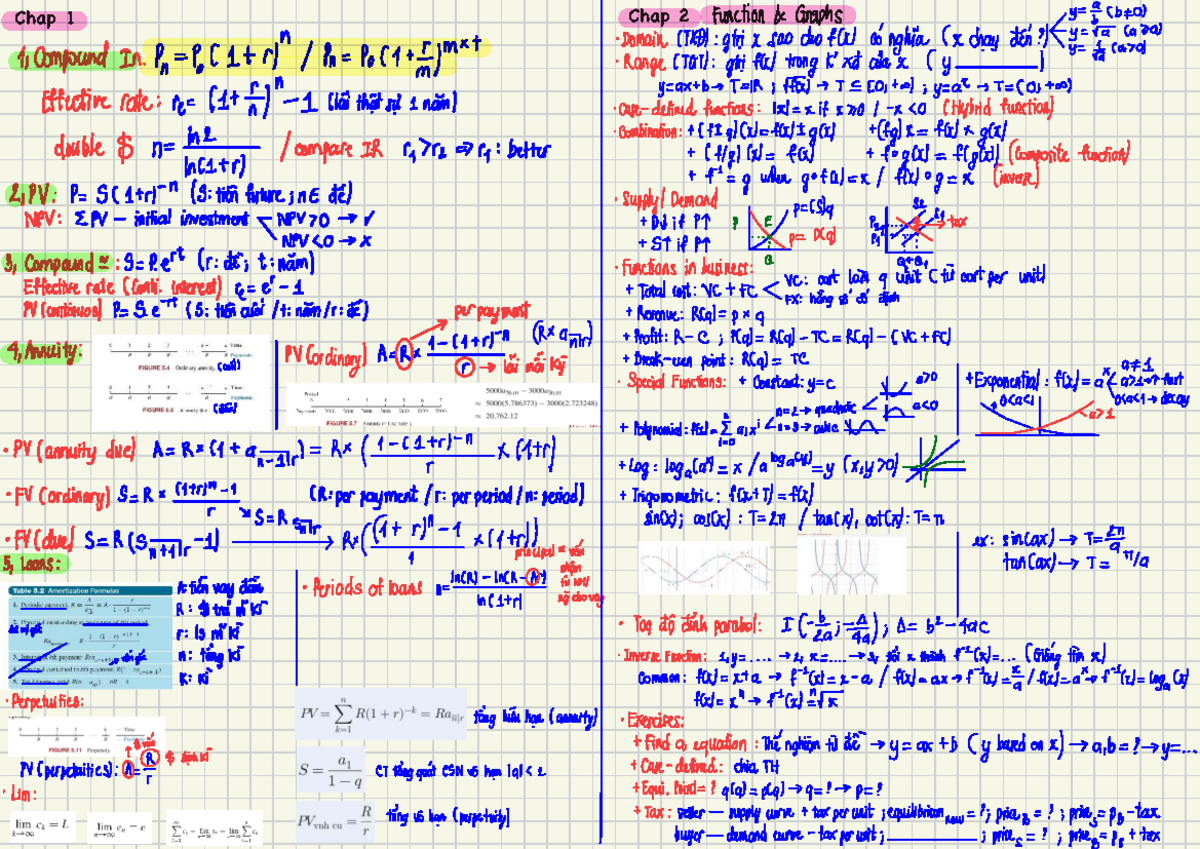 Chap 1
1, Compound In. Pn = P0 (1+r)^n / Pn = P0 (1+r/m)^(m×t)
Effective rate: re = (1+r/n)^n − 1 (lãi thật sự 1 năm)
double $ n = ln2/ln(1+r) / compare IR r1 > r2 ⇒ r1: better
2, PV: P = S(1+r)^−n (S: tiền future; n ∈ đề)
NPV: ΣPV − initial investment NPV > 0 → ✓
NPV < 0 → x
3, Compound ≃: S = P.e^rt (r: đề; t: năm)
Effective rate (conti. interest) re = e^r − 1
PV (continuous) P = S.e^−rt (S: tiền cuối / t: năm / r: đề)
per payment
4, Annuity:
Time
Payments
FIGURE 5.4 Ordinary annuity. (cuối)
FIGURE 5.5 Annuity due. (đầu)
PV (ordinary) A = R × (1−(1+r)^−n)/r (R × a n|r)
→ lãi mỗi kỳ
Period
Payments
5000a − 3000a
≈ 5000(5.786373) − 3000(2.723248)
≈ 20,762.12
FIGURE 5.7
• PV (annuity due) A = R × (1 + a n−1|r) = R × ((1−(1+r)^−n)/r × (1+r))
• FV (ordinary) S = R × ((1+r)^n − 1)/r (R: per payment / r: per period / n: period)
↘ S = R s n|r
• FV (due) S = R (S n+1|r − 1) → R × (((1+r)^n − 1)/1 × (1+r))
5, Loans:
Table 5.2 Amortization Formulas
1. Periodic payment:
A: tiền vay đầu
R: $ trả mỗi kì
r: ls mỗi kì
n: tổng kì
K: kì
• Periods of loans n = (ln(R) − ln(R − A r))/ln(1+r)
principal = vốn
• Perpetuities:
Time
Payments
FIGURE 5.11 Perpetuity.
PV (perpetuities): A = R/r
$ định kì
• Lim:
lim k→∞ ck = L
lim n→∞ cn = e
PV = Σ k=1 n R(1 + r)^−k = Ra n|r tổng hữu hạn (annuity)
S = a1/(1 − q) CT tổng quát CSN vô hạn |q| < 1
PV vĩnh cửu = R/r tổng vô hạn (perpetuity)
Chap 2 Function & Graphs
• Domain (TXĐ): gtrị x sao cho f(x) có nghĩa (x chạy đến ?)
y = a/b (b≠0)
y = √a (a ≥ 0)
y = 1/√a (a>0)
• Range (TGT): gtrị f(x) trong txđ của x (y ______)
y = ax+b → T = ℝ; √f(x) → T ⊆ [0,+∞); y = a^x → T = (0,+∞)
• Case-defined functions: |x| = x if x ≥ 0 / −x < 0 (Hybrid function)
• Combination: + (f ± g)(x) = f(x) ± g(x) + (fg)x = f(x) × g(x)
+ (f/g)(x) = f(x) + f∘g(x) = f(g(x)) (Composite function)
+ f^−1 = g when g∘f(x) = x / f(x)∘g = x (inverse)
• Supply / Demand
+ D↓ if P↑
+ S↑ if P↑
P
E
Q
p = (S)q
p = D(q)
S2
S1
→ tax
• Functions in business:
+ Total cost: VC + FC
VC: cost làm q unit (từ cost per unit)
FX: hằng số cố định
+ Revenue: R(q) = p × q
+ Profit: R − C; P(q) = R(q) − TC = R(q) − (VC + FC)
+ Break-even point: R(q) = TC
• Special Functions: + Constant: y = c
a>0
a<0
+ Polynomial: f(x) = Σ i=0 n ai x^i
n = 2 → quadratic
n = 3 → cubic
+ Exponential: f(x) = a^x
a ≠ 1
0<a<1 → decay
0<a<1
a>1
+ Log: log a(a^x) = x / a^(log a(y)) = y (x,y > 0)
+ Trigonometric: f(x+T) = f(x)
sin(x); cos(x): T = 2π / tan(x), cot(x): T = π
ex: sin(ax) → T = 2π/a
tan(ax) → T = π/a
• Toạ độ đỉnh parabol: I (−b/2a; −Δ/4a); Δ = b² − 4ac
• Inverse Function: 1, y = ..... → 2, x = ..... → 3, đổi x thành f^−1(x) = ... (Giống tìm x)
Common: f(x) = x + a → f^−1(x) = x − a / f(x) = ax → f^−1(x) = x/a / f(x) = a^x → f^−1(x) = log a(x)
f(x) = x^n → f^−1(x) = n√x
• Exercises:
+ Find a equation: Thế nghiệm từ đề → y = ax + b (y based on x) → a,b = ? → y = ...
+ Case-defined: chia TH
+ Equi. Point = ? q(q) = p(q) → q = ? → p = ?
+ Tax: seller — supply curve + tax per unit; equilibrium new = ?; price B = ?; price S = pB − tax
buyer — demand curve − tax per unit; ______; price S = ?; price B = pS + tax